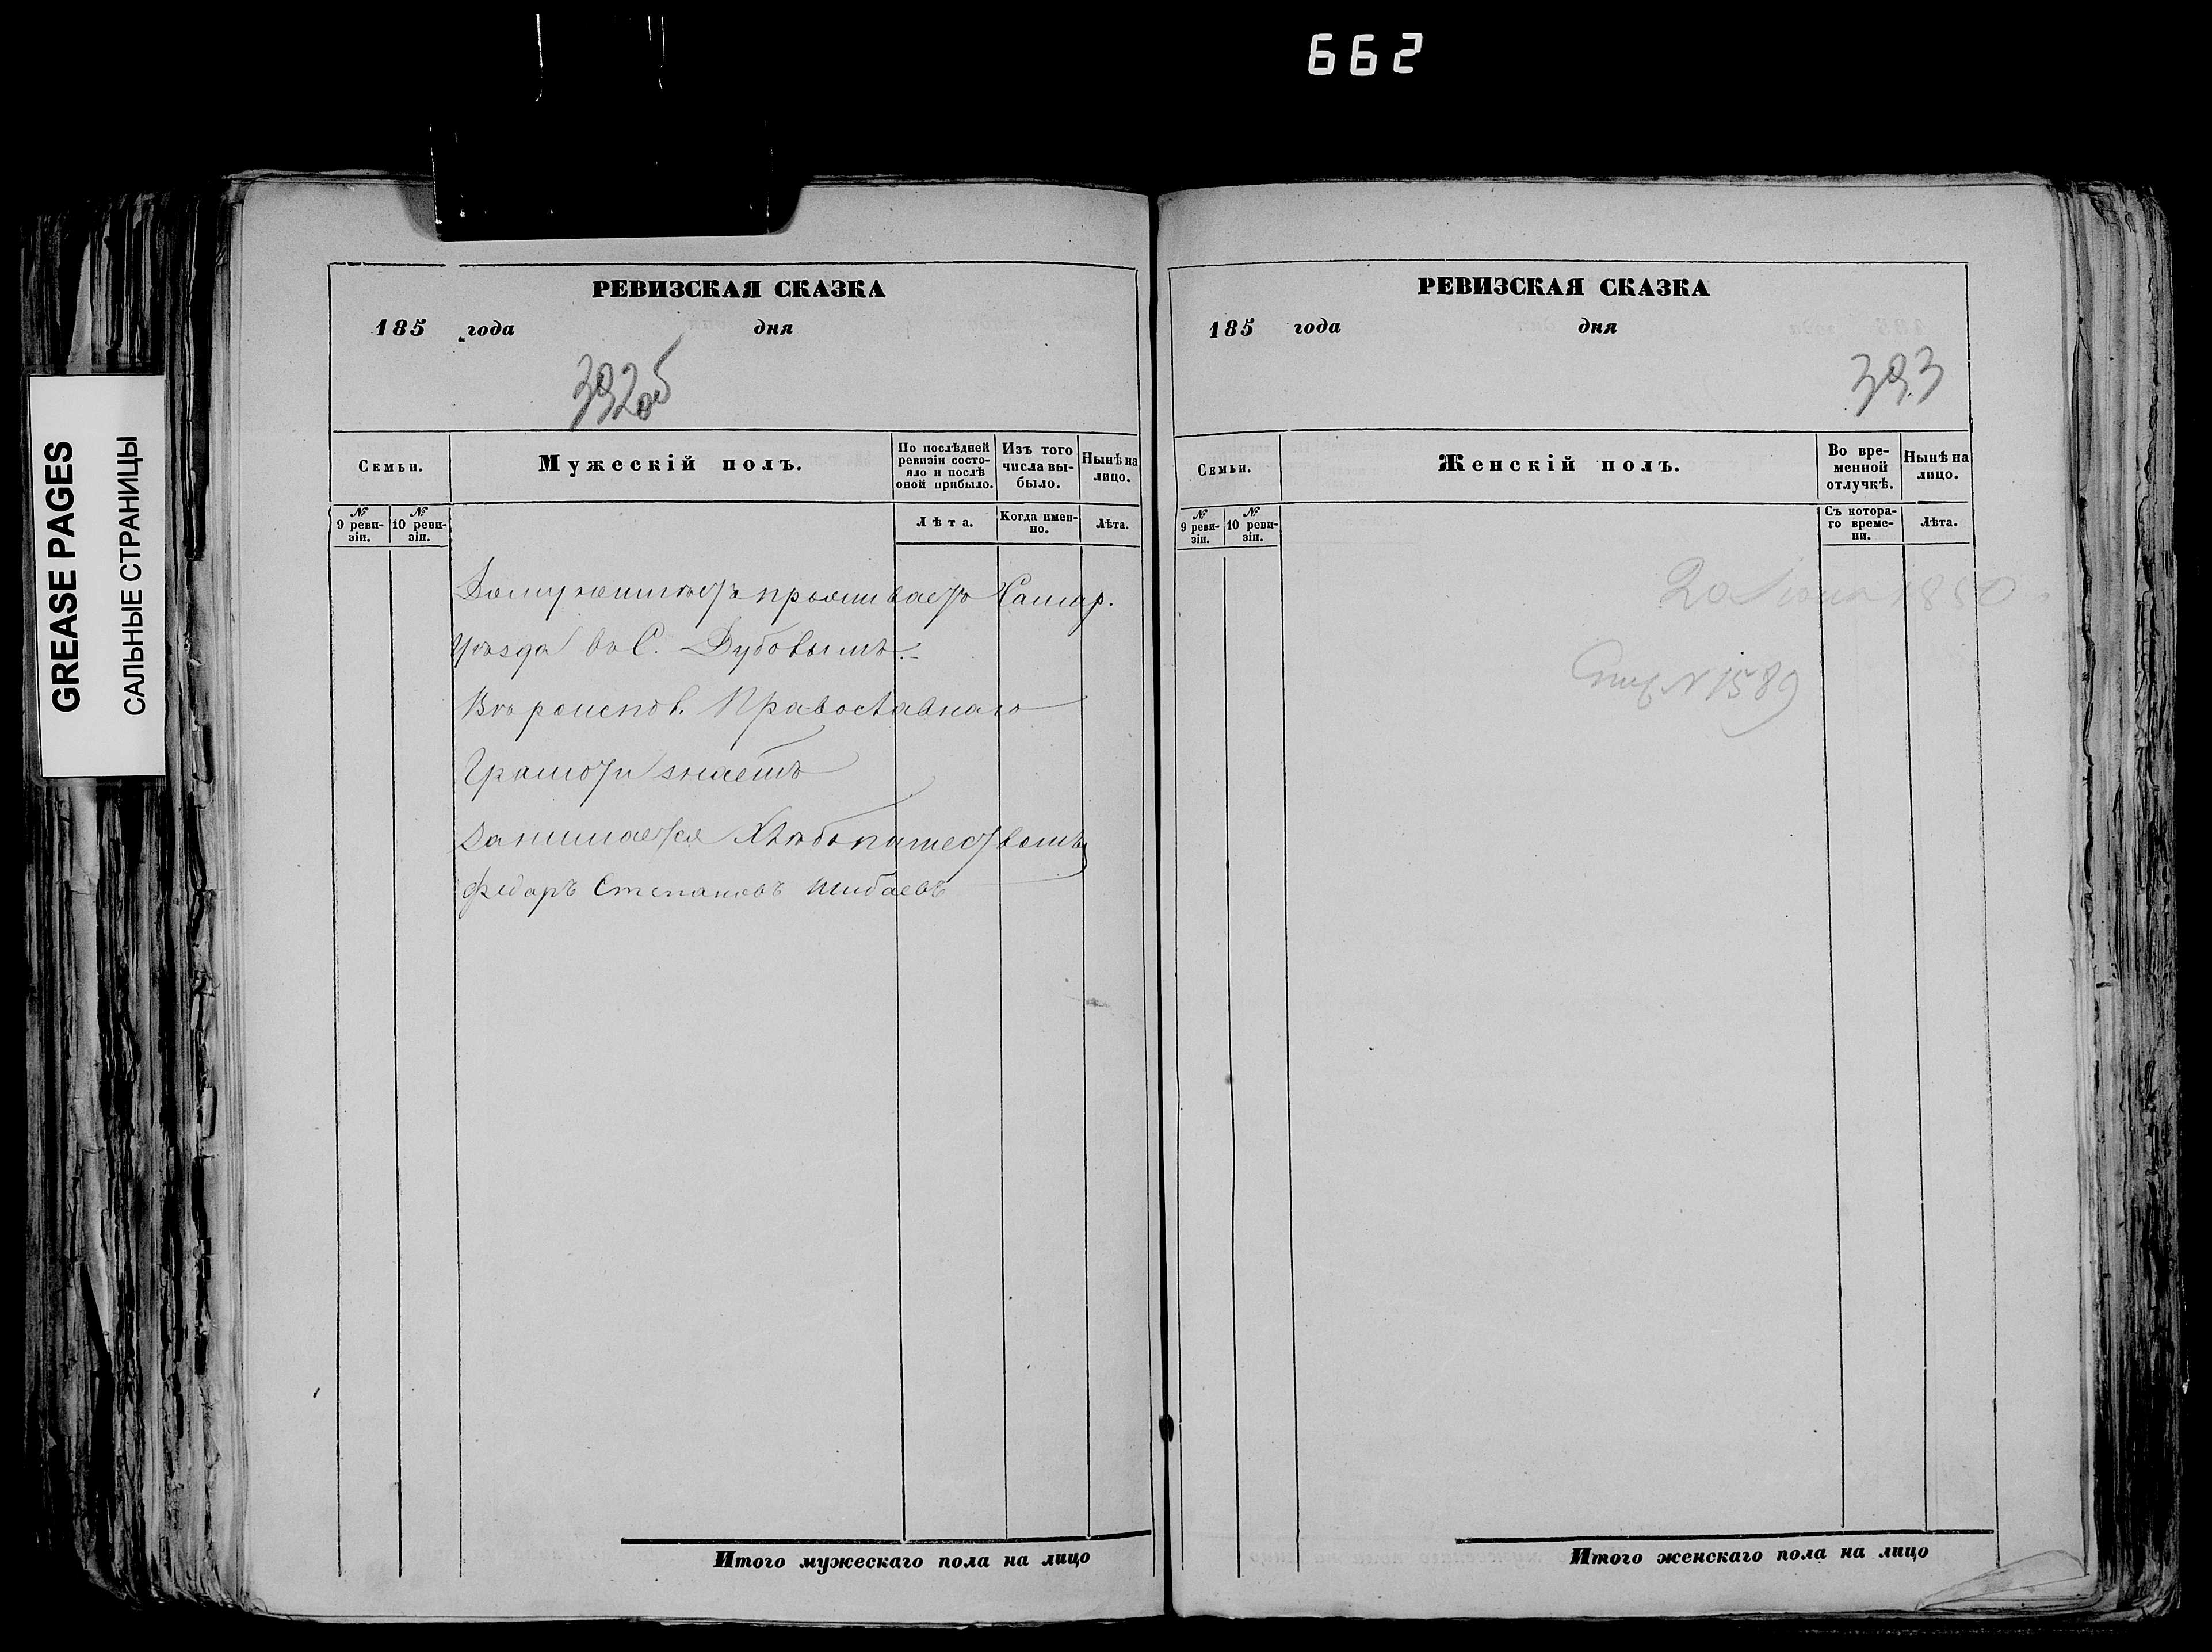 662
GREASE PAGES
САЛЬНЫЕ СТРАНИЦЫ
РЕВИЗСКАЯ СКАЗКА
185 года дня
392об
Семьи.
Мужескій полъ.
По послѣдней ревизіи состо-
яло и послѣ
оной прибыло.
Изъ того
числа вы-
было.
Нынѣ на
лицо.
№
9 реви-
зіи.
№
10 реви-
зіи.
Лѣта.
Когда имен-
но.
Лѣта.
проживаетъ Самар.
уѣзда въ С. Дубовымъ.
Вѣроиспов. Православнаго
Грамоти знаетъ
Занимается Хлѣбопашествомъ
Федоръ Степановъ Шибаевъ
Итого мужескаго пола на лицо
РЕВИЗСКАЯ СКАЗКА
185 года дня
393
Семьи.
Женскій полъ.
Во вре-
менной
отлучкѣ.
Нынѣ на
лицо.
№
9 реви-
зіи.
№
10 реви-
зіи.
Съ котора-
го време-
ни.
Лѣта.
1850
№ 1589
Итого женскаго пола на лицо